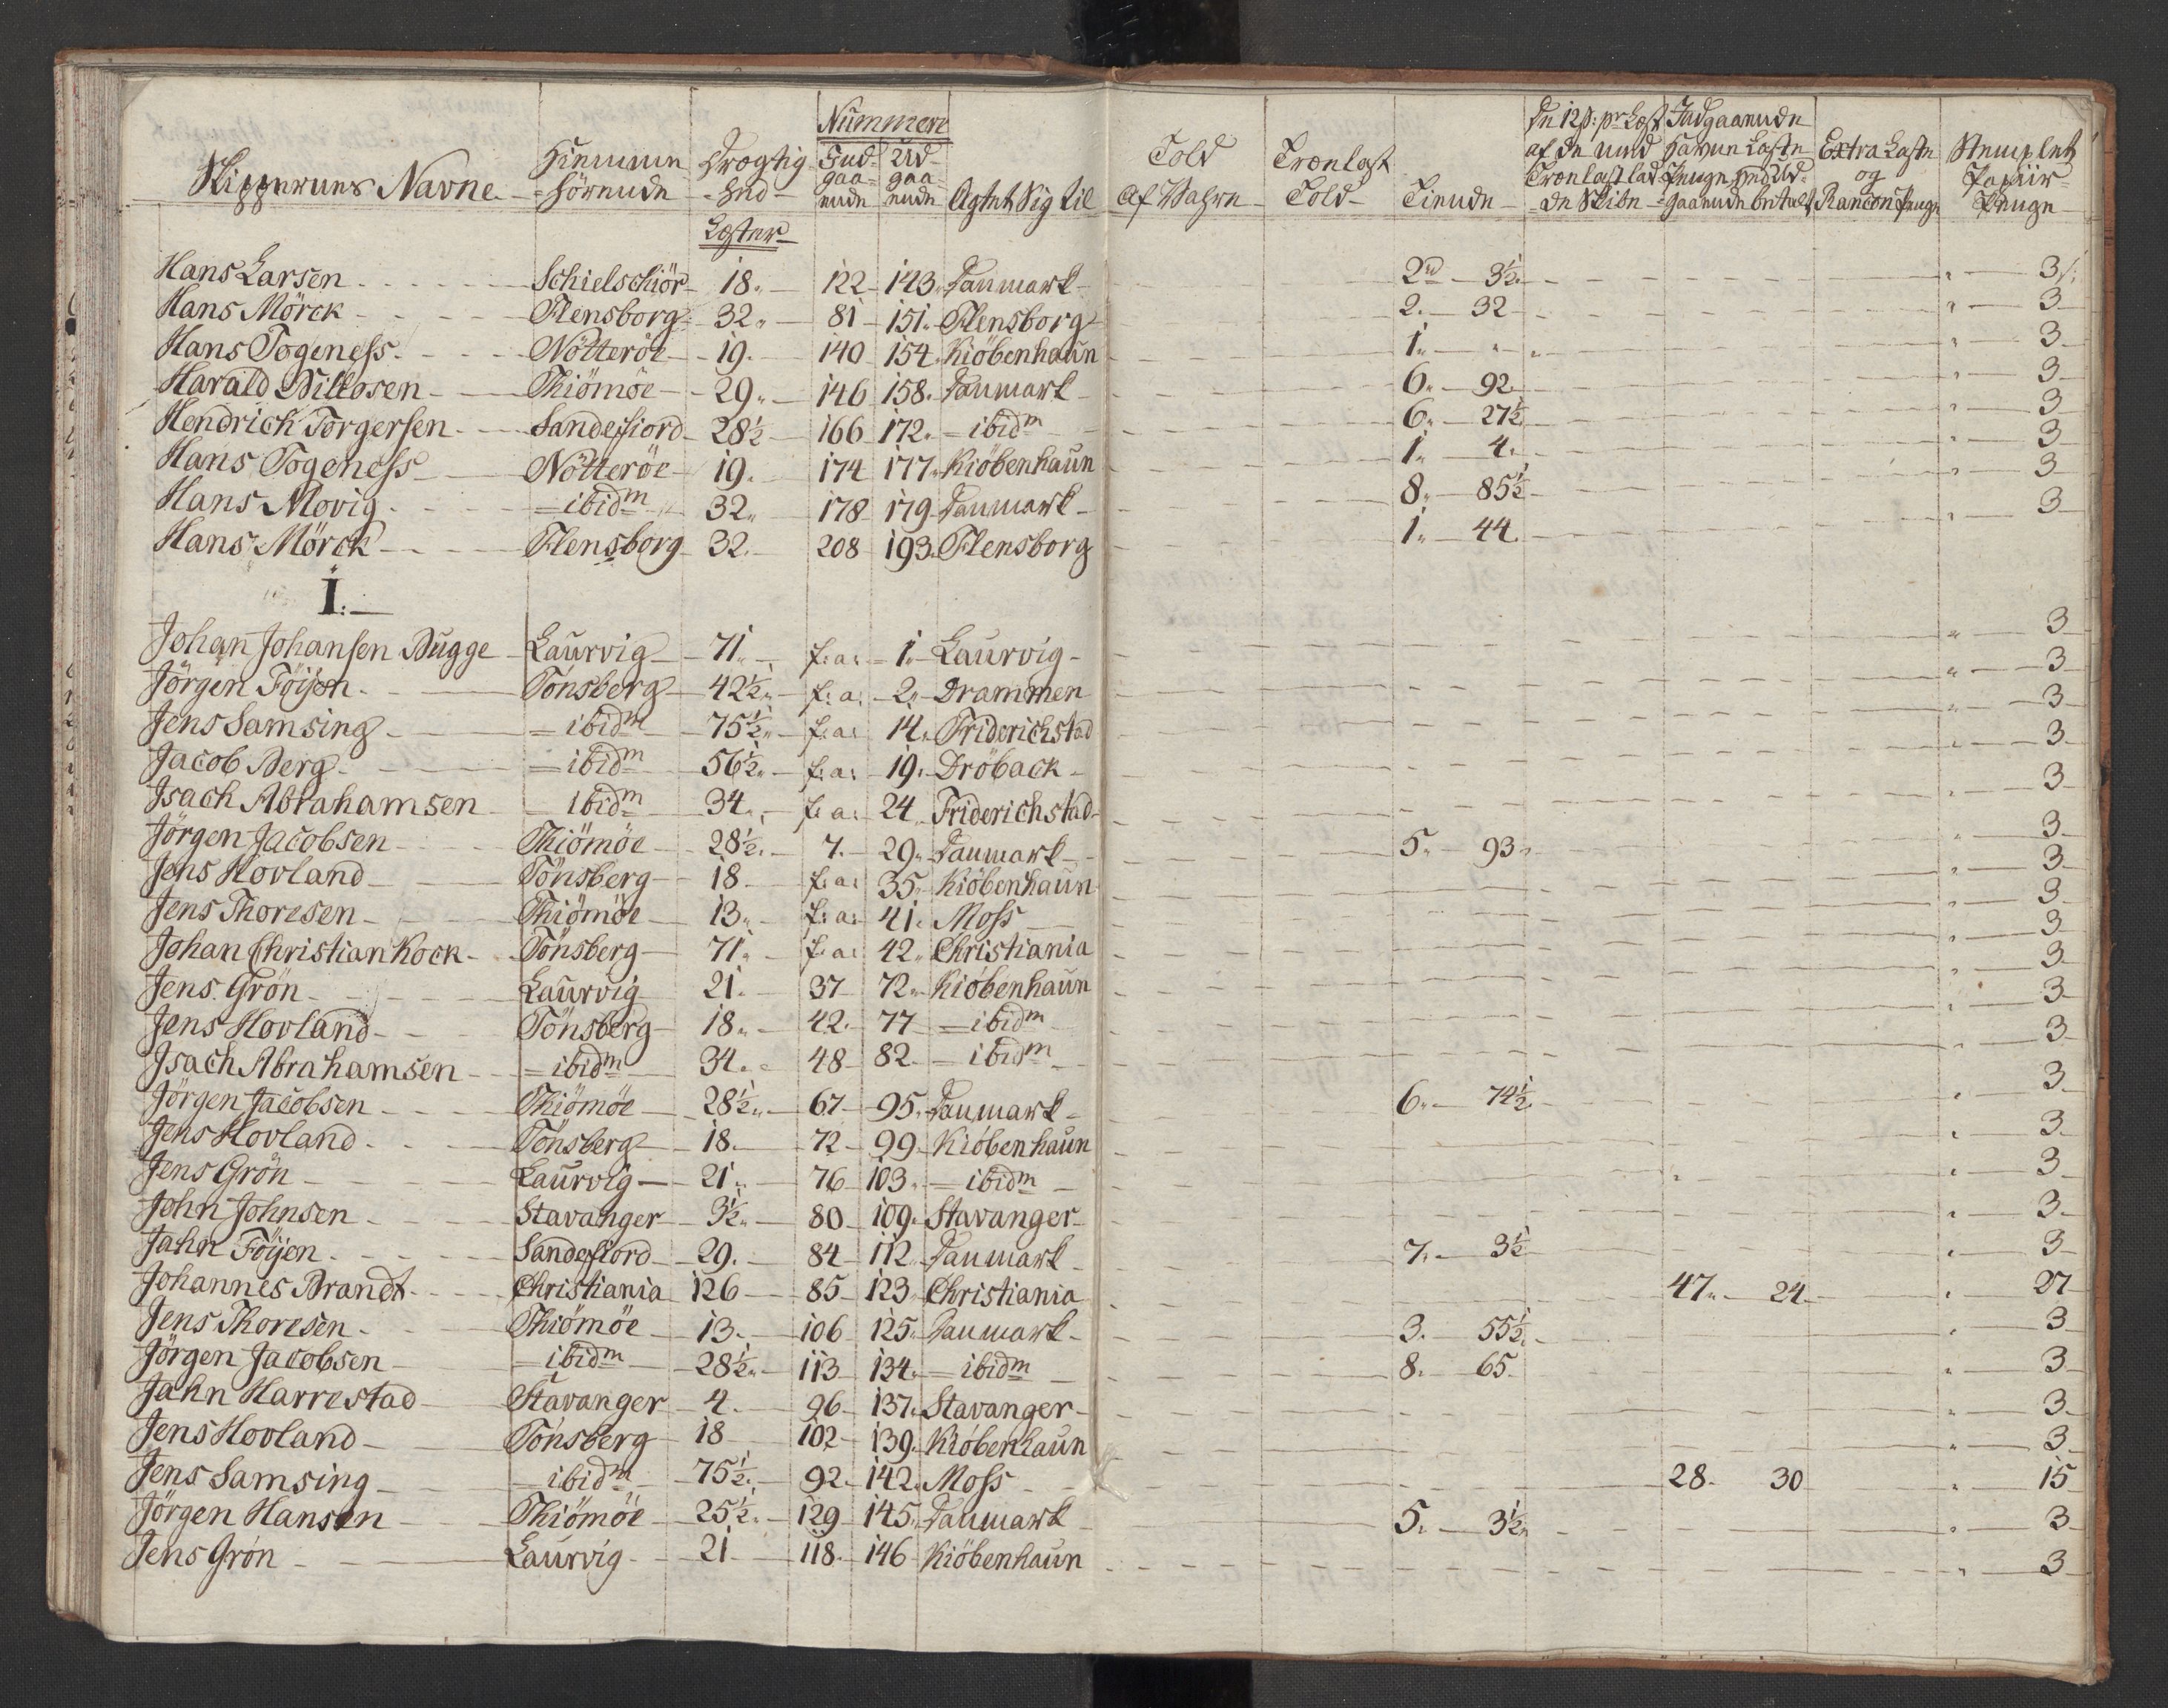 Nummere
Skippernes Navne. Hiemme =hörende Drægtig =hed Ind= gaa= ende Ud= gaa= ende Agtet Sig til Told af Vahre Trælast Told Tiende De 12 s: pr Læst af de med Trælast lad= de Skibe Indgaaende Havne Laste Penge hed Ud= =gaaende betalt Extra Laste og Rancon Penge Stemplet Papiir= Penge
Læster
Hans Larsen Schielschiör 18. 122 143. Danmark 2rd 3½ " 3 s:
Hans Mörck Flensborg 32. 81 151. Flensborg 2. 32 " 3
Hans Togeness Nötteröe 19. 140 154. Kiöbenhaun 1. " " 3
Harald Nillosen Thiömöe 29. 146 158. Danmark 6. 92 " 3
Hendrich Torgersen Sandefiord 28½ 166 172. =ibidm 6. 27½ " 3
Hans Togeness Nötteröe 19. 174 177. Kiöbenhaun 1. 4. " 3
Hans Movig =ibidm 32. 178 179 Danmark 8. 85½ " 3
Hans Mörck Flensborg 32. 208 193. Flensborg 1. 44. " 3
I.
Johan Johansen Bugge Laurvig 71. f: a: 1. Laurvig " 3
Jörgen Föijen Tönsberg 42½. f: a: 2. Drammen " 3
Jens Samsing =ibidm 75½. f: a: 14. Friderichstad " 3
Jacob Berg =ibidm 56½. f: a: 19. Dröback " 3
Isach Abrahamsen ibidm 34. f: a: 24. Friderichstad " 3
Jörgen Jacobsen Thiömöe 28½. 7. 29. Danmark 5. 93. " 3
Jens Hovland Tönsberg 18 f: a: 35. Kiöbenhaun " 3
Jens Thoresen Thiömöe 13. f: a: 41. Moss " 3
Johan Christian Kock Tönsberg 71. f: a: 42. Christiania " 3
Jens Grön Laurvig 21. 37 72. Kiöbenhaun " 3
Jens Hovland Tönsberg 18. 42. 77 =ibidm " 3
Isach Abrahamsen =ibidm 34. 48 82. =ibidm " 3
Jörgen Jacobsen Thiömöe 28½. 67 95. Danmark 6. 74½ " 3
Jens Hovland Tönsberg 18. 72 99. Kiöbenhaun " 3
Jens Grön Laurvig 21. 76 103. =ibidm " 3
John Johnsen Stavanger 3½. 80 109. Stavanger " 3
Jahn Föijen Sandefiord 29. 84 112 Danmark 7. 3½ " 3
Johannes Brandt Christiania 126 85 123 Christiania 47. 24 " 27
Jens Thoresen Thiömöe 13. 106 125. Danmark 3. 55½. " 3
Jörgen Jacobsen =ibidm 28½. 113 134. =ibidm 8. 65 " 3
Jahn Harrestad Stavanger 4. 96 137. Stavanger " 3
Jens Hovland Tönsberg 18 102 139. Kiöbenhaun " 3
Jens Samsing =ibidm 75½. 92. 142. Moss 28. 30 " 15
Jörgen Hansen Thiömöe 25½. 129 145. Danmark 5. 3½ " 3
Jens Grön Laurvig 21 118. 146 Kiöbenhaun " 3